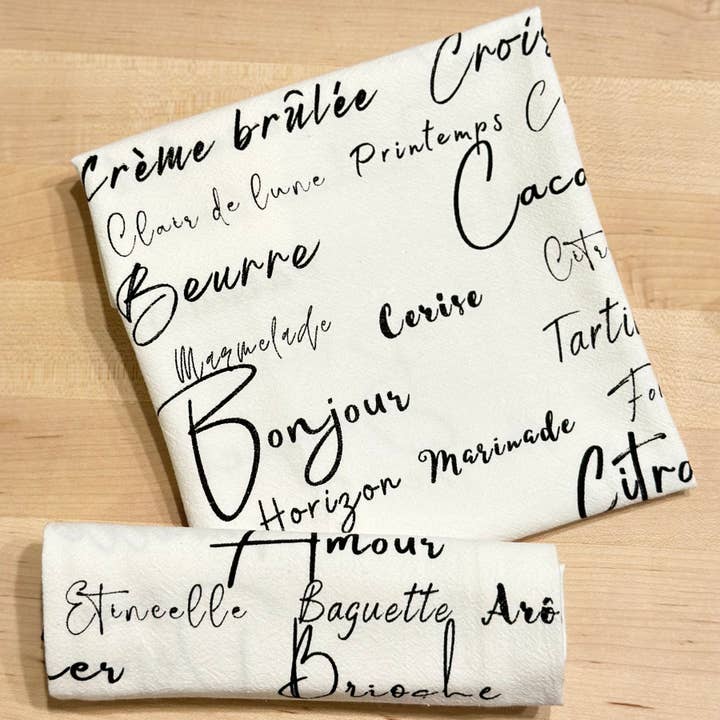 Crois
Crème brûlée
Printemps C
Clair de lune
Caca
Beurre
Citr
Cerise
Marmelade
Tarti
Bonjour
Fo
Marinade
Horizon
Citro
Amour
Etincelle Baguette Arô
er
Brioche